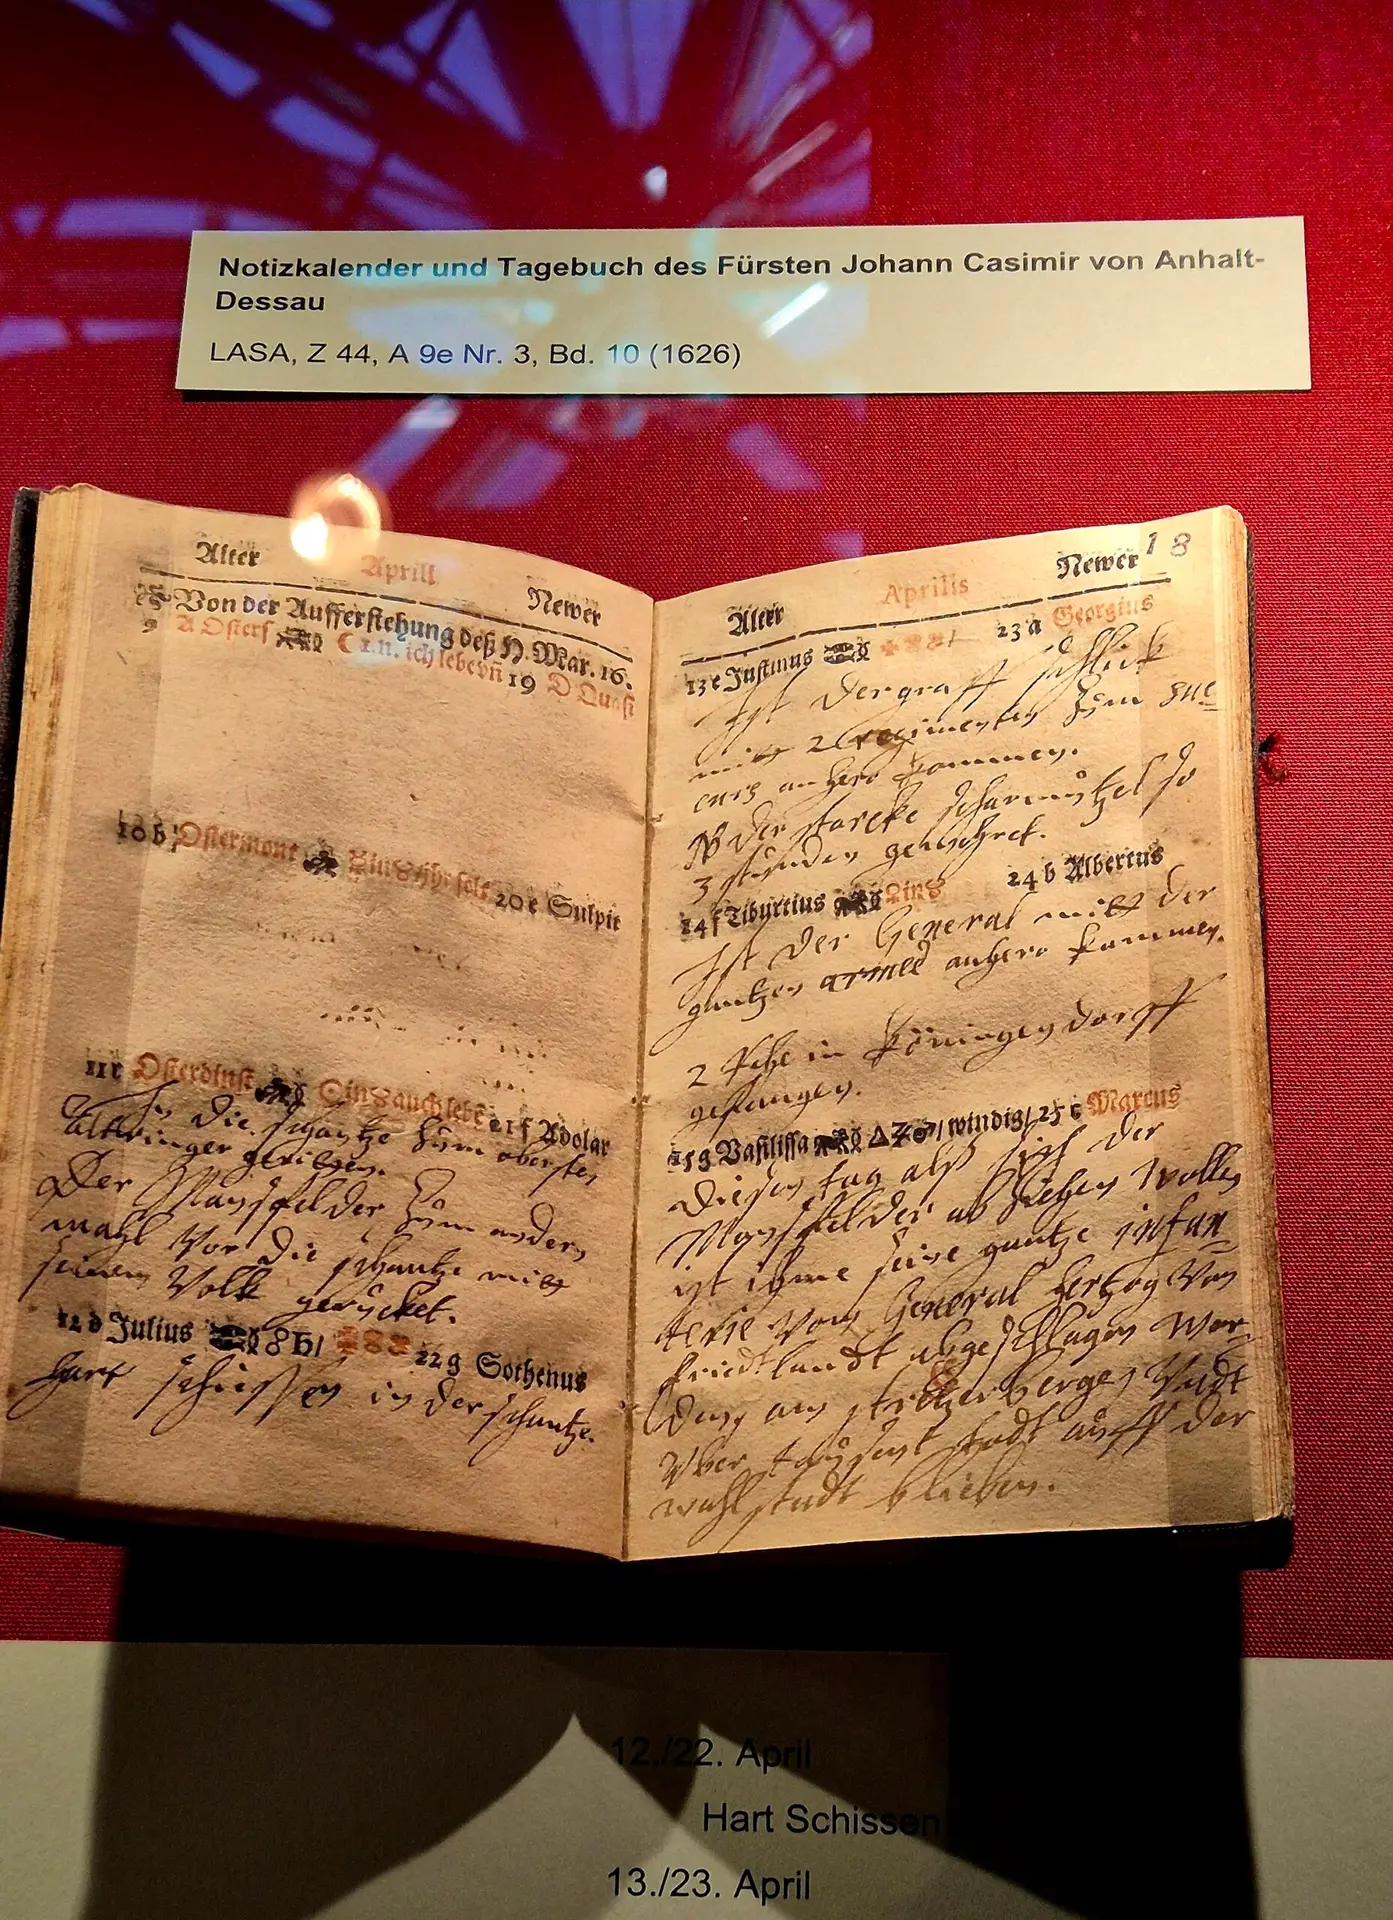 Notizkalender und Tagebuch des Fürsten Johann Casimir von Anhalt-
Dessau
LASA, Z 44, A 9e Nr. 3, Bd. 10 (1626)
Alter Aprill Newer
Von der Aufferstehung deß H. Mar. 16.
9 A Osters ich lebe 19 D Quasi
10 b Ostermont 20 e Sulpit
11 c Osterdinst auch lebe 21 f Adolar
In die schantze zum obersten
Altringer geritten.
Der Mansfelder zum andern
mahl Vor die schantze mitt
seinem Volk gerücket.
12 d Julius 22 g Sothenus
hart schissen in der schantze.
18
Alter Aprilis Newer
13 e Justinus 23 a Georgius
Ist der graff schlick
mitt 2 Regimenten zum suc
curs anhero kommen.
NB der starcke scharmützel so
3 stunden gewehret.
14 f Tiburtius 24 b Albertus
Ist der General mitt der
gantzen armee anhero kommen.
2 Rehe in dorff
gefangen.
15 g Vasilissa windig/ 25 c Marcus
Diesen tag alß sich der
Mansfelder ab ziehen wollen
ist ihme seine gantze infan
terie vom General Hertzog Von
friedtlandt abgeschlagen wor
den, Vndt
Vber tausent todt auff der
wahlstadt blieben.
12./22. April
Hart Schissen
13./23. April